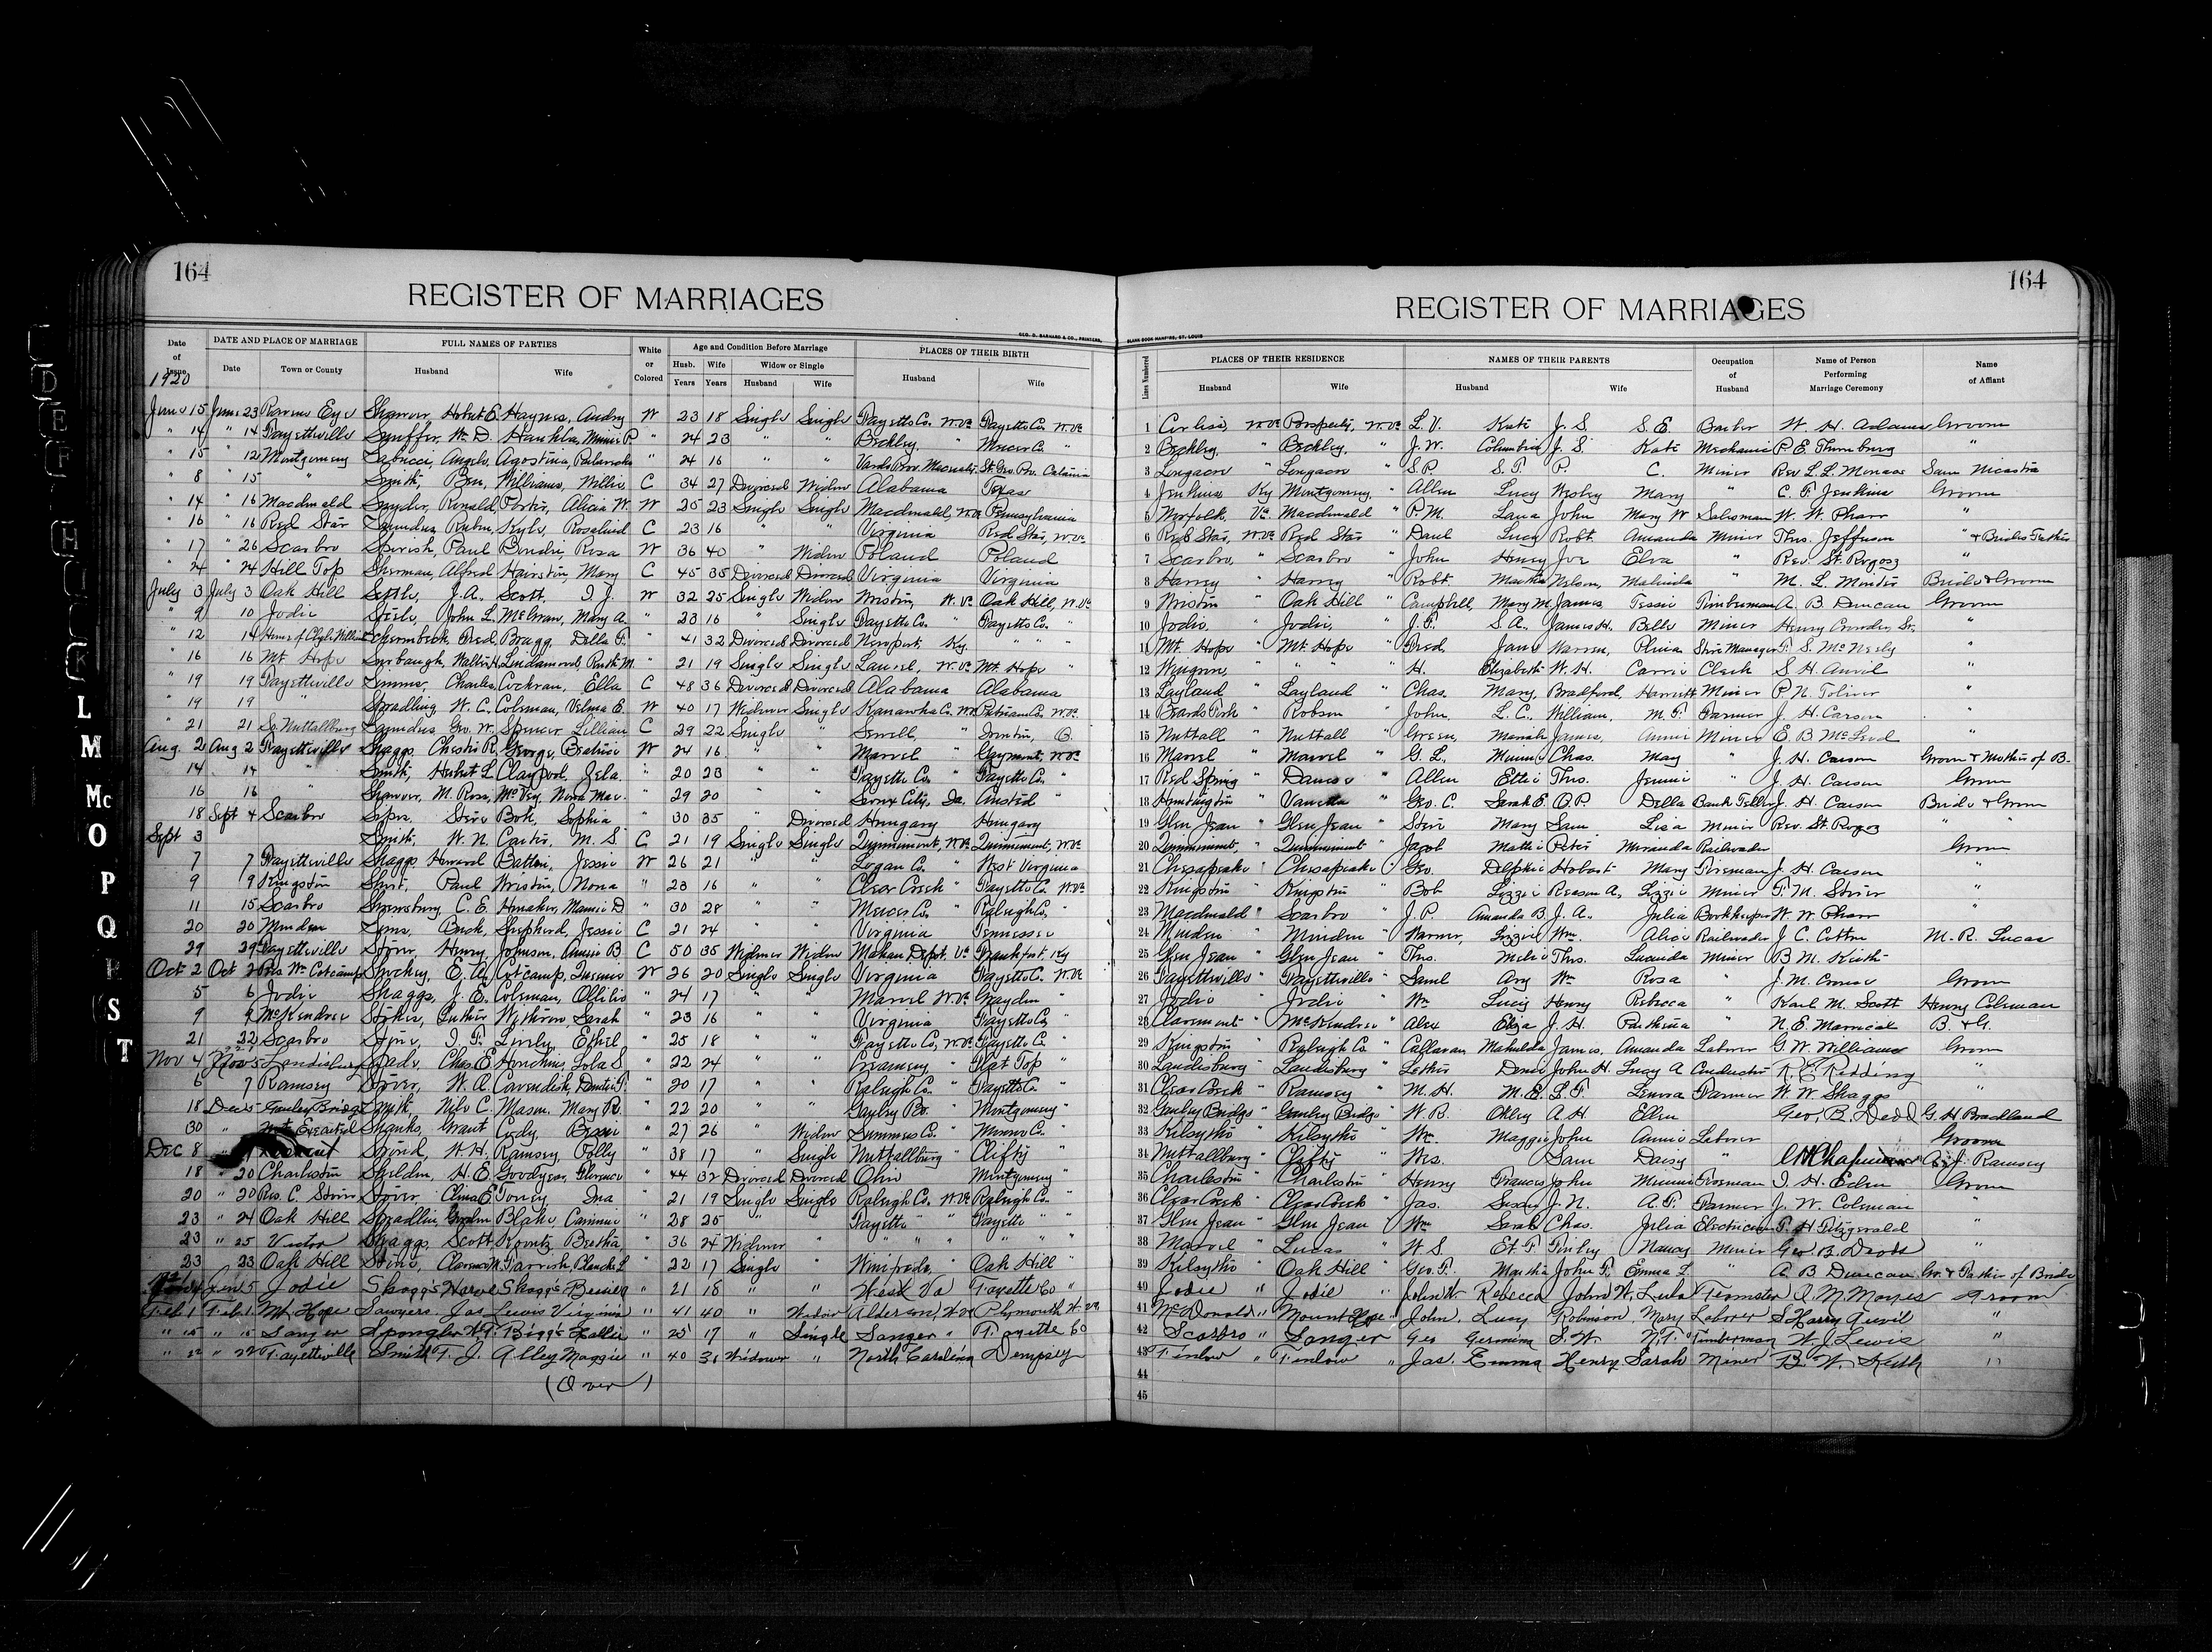 164
REGISTER OF MARRIAGES
GEO. D. BARNARD & CO., PRINTERS,
Date of Issue DATE AND PLACE OF MARRIAGE FULL NAMES OF PARTIES White or Colored Age and Condition Before Marriage PLACES OF THEIR BIRTH
Date Town or County Husband Wife Husb. Years Wife Years Widow or Single Husband Wife Husband Wife
1920
June 15 June 23 Ravens Eye Shawver, Hobert E. Haynes, Audry W 23 18 Single Single Fayette Co. W.Va. Fayette Co. W.Va.
" 14 " 14 Fayetteville Snuffer, Wm D. Minnie P. " 24 23 " " Beckley, " Mercer Co. "
" 15 " 12 Montgomery Angelo, Agostina, " 24 16 " "
" 8 " 15 " Smith, Ben, Williams, Willie C 34 27 Divorced Widow Alabama Texas
" 14 " 16 Macdonald Snyder, Ronald, Porter, Alicia W. W 25 23 Single Single Macdonald, W.Va. Pennsylvania
" 16 " 16 Red Star Saunders, Rubin, Kyle, Rosalind C 23 16 " " Virginia Red Star, W.Va.
" 17 " 26 Scarbro Paul Rosa W 36 40 " Widow Poland Poland
" 24 " 24 Hill Top Sherman, Alfred Hairston, Mary C 45 35 Divorced Divorced Virginia Virginia
July 3 July 3 Oak Hill Settle, J. A. Scott, I. J. W 32 25 Single Widow Wriston, W.Va. Oak Hill, W.Va.
" 9 10 Jodie Steele, John L. McGraw, Mary A. " 23 16 " Single Fayette Co. " Fayette Co. "
" 12 14 Fred, Bragg, Della F. " 41 32 Divorced Divorced Newport, Ky. " " "
" 16 16 Mt Hope Surbaugh, Walter H. Lindamood, Ruth M. " 21 19 Single Single Laurel, W.Va. Mt. Hope "
" 19 19 Fayetteville Simms, Charles, Cochran, Ella C 48 36 Divorced Divorced Alabama Alabama
" 19 19 " Spradling W. C. Coleman, Velma E. W 40 17 Widower Single Kanawha Co. W.Va. Putnam Co. W.Va.
" 21 21 So. Nuttallburg Saunders Geo. W. Spencer Lillian C 29 22 Single " Sewell, " O.
Aug. 2 Aug 2 Fayetteville Skaggs, Chester R. George, Beatrice W 24 16 " " Marvel " W.Va.
14 14 " Smith, Herbert L. Claypool, Zela " 20 23 " " Fayette Co. " Fayette Co. "
16 16 " Shawver, M. Ross, McVey, Nora Mae. " 29 20 " " Sioux City, Ia. Ansted "
18 Sept 4 Scarbro Steve Sophia " 30 35 " Divorced Hungary Hungary
Sept 3 Smith, W. N. Carter, M. S. C 21 19 Single Single Quinnimont, W.Va. Quinnimont, W.Va.
7 7 Fayetteville Skaggs Howard Jessie W 26 21 " " Logan Co. " West Virginia
9 9 Kingston Paul Wriston, Nona " 23 16 " " Clear Creek " Fayette Co. W.Va.
11 15 Scarbro Shrewsbury, C. E. Honaker, Mamie D. " 30 28 " " Mercer Co. " Raleigh Co. "
20 20 Minden Sims, Buck, Shepherd, Jessie C 21 24 " " Virginia Tennessee
29 29 Fayetteville Henry Johnson, Annie B. C 50 35 Widower Widow Depot, Va. Frankfort Ky
Oct 2 Oct 2 Res Wm Cotcamp Stuckey, E. A. Cotcamp, W 26 20 Single Single Virginia Fayette Co. W.Va.
5 6 Jodie Skaggs, J. E. Coleman, Ollie " 24 17 " " Marvel W.Va. Grayden "
9 9 McKendree Stokes, Luther, Withrow, Sarah " 23 16 " " Virginia Fayette Co. "
21 22 Scarbro I. F. Lively, Ethel, " 25 18 " " Fayette Co. W.Va. Fayette Co. "
Nov 4 Nov 5 Landisburg Chas. E. Honchins, Lola S. " 22 24 " " " Flat Top "
6 7 Ramsey Stover, W. A. Cavendish, " 20 17 " " Raleigh Co. " Fayette Co. "
18 Dec 5 Gauley Bridge Smith, Nile C. Mason, Mary R. " 22 20 " " Gauley Br. " Montgomery "
30 " Not Executed Shanks, Grant Cody, Bessie " 27 26 " Widow Summers Co. " Monroe Co. "
Dec 8 H. H. Ramsey, Polly " 38 17 " Single Nuttallburg " Clifty "
18 " 20 Charleston Sheldon, H. E. Goodyear, Florence " 44 32 Divorced Divorced Ohio Montgomery "
20 " 20 Res. C. Stover Stover, E. Toney, Ina " 21 19 Single Single Raleigh Co. W.Va. Raleigh Co. "
23 " 24 Oak Hill Spradlin, Gordon Blake, Cammie " 28 25 " " Fayette " Fayette "
23 " 25 Victor Skaggs, Scott, Koontz, Bertha " 36 24 Widower " " " " " " "
23 23 Oak Hill Clarence N. Parrish, Blanche L. " 22 17 Single " Winifrede, " Oak Hill "
Jan 5 Jodie Skaggs Skaggs Bessie " 21 18 " " West Va Fayette Co "
Feb 1 Feb 1 Mt Hope Sawyers, Jas Lewis Virginia " 41 40 " Widow Alderson, W.Va Plymouth W.Va.
" 15 " 15 Sanger Spangler W. F. Biggs Hallie " 25 17 " Single Sanger " Fayette Co
" 22 " 22 Fayetteville Smith T. J. Alley Maggie " 40 31 Widower " North Carolina Dempsey
(Over)
L
M
Mc
O
P
Q
R
S
T
164
REGISTER OF MARRIAGES
BLANK BOOK MANF'RS, ST. LOUIS
Lines Numbered PLACES OF THEIR RESIDENCE NAMES OF THEIR PARENTS Occupation of Husband Name of Person Performing Marriage Ceremony Name of Affiant
Husband Wife Husband Wife
1 Corliss, W.Va. Prosperity, W.Va. L. V. Kate J. S S. E. Barber W. H. Adams Groom
2 Beckley, " Beckley, " J. W. Columbia J. S. Kate Mechanic P. E. Thornburg "
3 " " S. P. S. F. P. C. Miner Rev L. L. Sam Nicastro
4 Jenkins Ky Montgomery, " Allen Lucy Wesley Mary " C. F. Jenkins Groom
5 Norfolk, Va. Macdonald " P. M. John Mary W Salesman W. W. Pharr "
6 Red Star, W.Va. Red Star " Daul Lucy Robt. Amanda Miner Thos. Jefferson " & Brides Father
7 Scarbro, " Scarbro " John Henry Joe Elva " Rev. St. "
8 Harvey " Harvey " Robt. Martha Nelson, Malinda " M. L. Minter Bride & Groom
9 Wriston " Oak Hill " Campbell, Mary M. James, Tessie Timberman A. B. Duncan Groom
10 Jodie, " Jodie, " J. F. S. A. James H. Belle Miner Henry Crowder, Sr. "
11 Mt. Hope " Mt. Hope " Fred Jane Warren, Store Manager F. S. McNeely "
12 " " " H. Elizabeth W. H. Carrie Clerk S. H. Auvil "
13 Layland " Layland " Chas. Mary, Bradford, Harriett Miner P. N. Toliver "
14 Beards Fork " Robson " John, L. C. William, M. F. Farmer J. H. Carson "
15 Nuttall " Nuttall " Green, Mariah James, Annie Miner E. B. McLeod "
16 Marvel " Marvel " G. L. Minnie Chas. Mary " J. H. Carson Groom & Mother of B.
17 Red Spring " Danese " Allen Ettie Thos. Jennie " J. H. Carson Groom
18 Huntington " Vanetta " Geo. C. Sarah E. O. P. Della Bank Teller J. H. Carson Bride & Groom
19 Glen Jean " Glen Jean " Steve Mary Sam Lisa Miner Rev. St. " "
20 Quinnimont, " Quinnimont " Jacob Mattie Peter Miranda Railroader Groom
21 Chesapeake " Chesapeake " Geo. Delphie Hobart Mary Fireman J. H. Carson "
22 Kingston " Kingston " Bob Lizzie Reason A. Lizzie Miner F. M. Stover "
23 Macdonald " Scarbro " J. P. Amanda B. J. A. Julia Bookkeeper W. W. Pharr "
24 Minden " Minden " Warner, Lizzie Wm. Alice Railroader J. C. Cotton M. R. Lucas
25 Glen Jean " Glen Jean " Thos. Thos. Lucinda Miner B. M. Keith
26 Fayetteville " Fayetteville " Saml Wm Rosa " J. M. Groom
27 Jodie " Jodie " Wm Lucy Henry Rebecca " Karl M. Scott Henry Coleman
28 Claremont " McKendree " Alex Eliza J. H. " N. E. B. & G.
29 Kingston " Raleigh Co. " Callavan Mahulda James, Amanda Laborer G. W. Williams Groom
30 Landisburg " Landisburg " John H. Lucy A Conductor R. E. Redding "
31 Clear Creek " Ramsey " M. H. M. E. L. F. Lenora Farmer W. W. Skaggs "
32 Gauley Bridge " Gauley Bridge " W. R. A. H Ellen Geo. B. Dodd G. H. Bradland
33 Kilsythe " Kilsythe " Wm. Maggie John Annie Laborer Groom
34 Nuttallburg " Clifty " Wes. Sam Daisy " A. J. Ramsey
35 Charleston " Charleston " Henry Frances John Minnie Fireman I. H. Eden Groom
36 Clear Creek " Clear Creek " Jas. Susan J. N. A. F. Farmer J. W. Coleman "
37 Glen Jean " Glen Jean " Wm Sarah Chas. Julia Electrician F. H. Fitzgerald "
38 Marvel " Lucas " W. S Et. F. Finley Nancy Miner Geo. B. "
39 Kilsythe " Oak Hill " Geo. F. Martha John F. Emma L. " A. B. Duncan Gr. & Father of Bride
40 Jodie " Jodie " John W Rebecca John W. Lula Teamster Groom
41 McDonald " Mount Hope " John, Lucy Robinson, Mary Laborer S Harry Auvil "
42 Scarbro " Sanger Geo Germina S. W. N. T. Timberman W. J. Lewis "
43 Finlow " Finlow " Jas. Emma Henry Sarah Miner B. W. Keith "
44
45